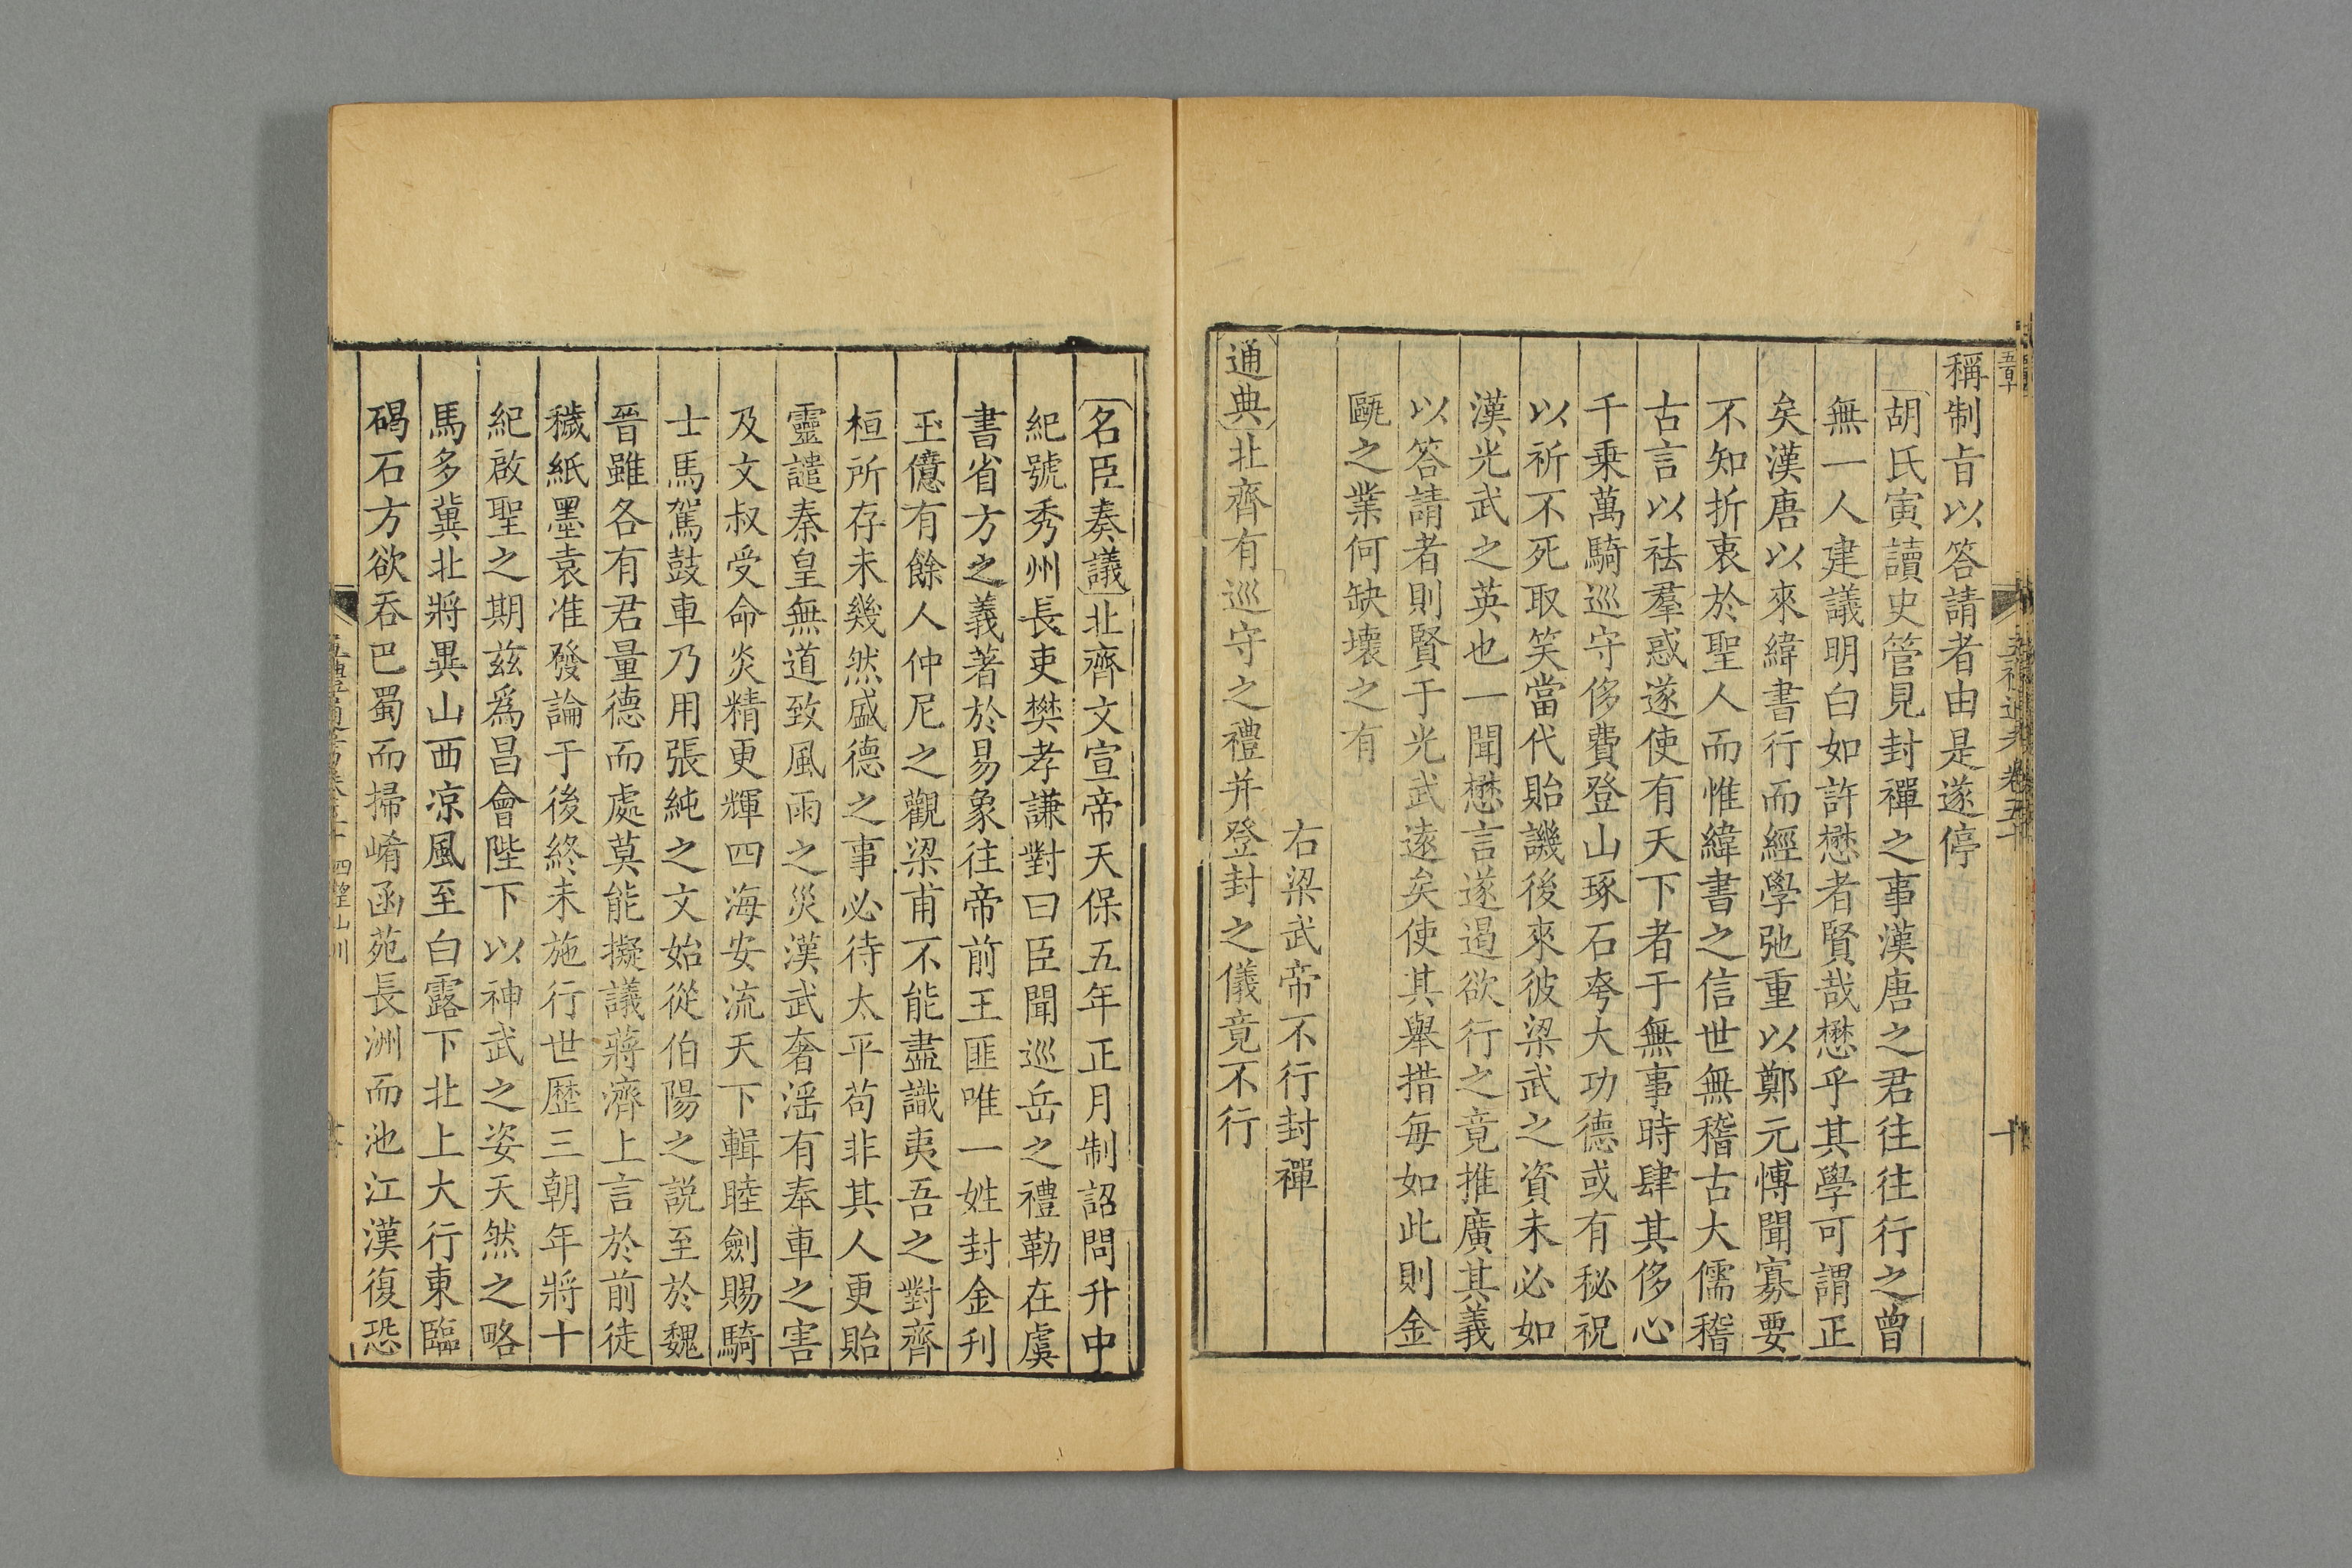 稱制旨以答請者由是遂停
胡氏寅讀史管見封禪之事漢唐之君往往行之曾
無一人建議明白如許懋者賢哉懋乎其學可謂正
矣漢唐以來緯書行而經學弛重以鄭元博聞寡要
不知折衷於聖人而惟緯書之信世無稽古大儒稽
古言以祛羣惑遂使有天下者于無事時肆其侈心
千乗萬騎巡守侈費登山琢石夸大功德或有秘祝
以祈不死取笑當代貽譏後來彼梁武之資未必如
漢光武之英也一聞懋言遂遏欲行之竟推廣其義
以答請者則賢于光武逺矣使其舉措每如此則金
甌之業何缺壞之有
右梁武帝不行封禪
通典北齊有巡守之禮并登封之儀竟不行
名臣奏議北齊文宣帝天保五年正月制詔問升中
紀號秀州長吏樊孝謙對曰臣聞巡岳之禮勒在虞
書省方之義著於易象往帝前王匪唯一姓封金刋
玉億有餘人仲尼之觀梁甫不能盡識夷吾之對齊
桓所存未幾然盛德之事必待太平苟非其人更貽
靈譴秦皇無道致風雨之災漢武奢淫有奉車之害
及文叔受命炎精更輝四海安流天下輯睦劍賜騎
士馬駕鼓車乃用張純之文始從伯陽之説至於魏
晉雖各有君量德而處莫能擬議蔣濟上言於前徒
穢紙墨袁准發論于後終未施行世歷三朝年將十
紀啟聖之期茲爲昌會陛下以神武之姿天然之略
馬多冀北將異山西凉風至白露下北上大行東臨
碣石方欲吞巴蜀而掃崤函苑長洲而池江漢復恐
四望山川